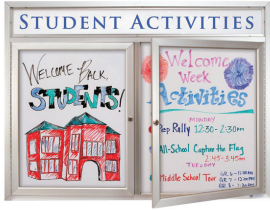 STUDENT ACTIVITIES
WELCOME BACK
STUDENTS!
Welcome
Week
Activities
MONDAY
Pep Rally 12:30-2:30pm
All-School Capture the Flag
2:45-3:45pm
TUESDAY
Middle School Tour